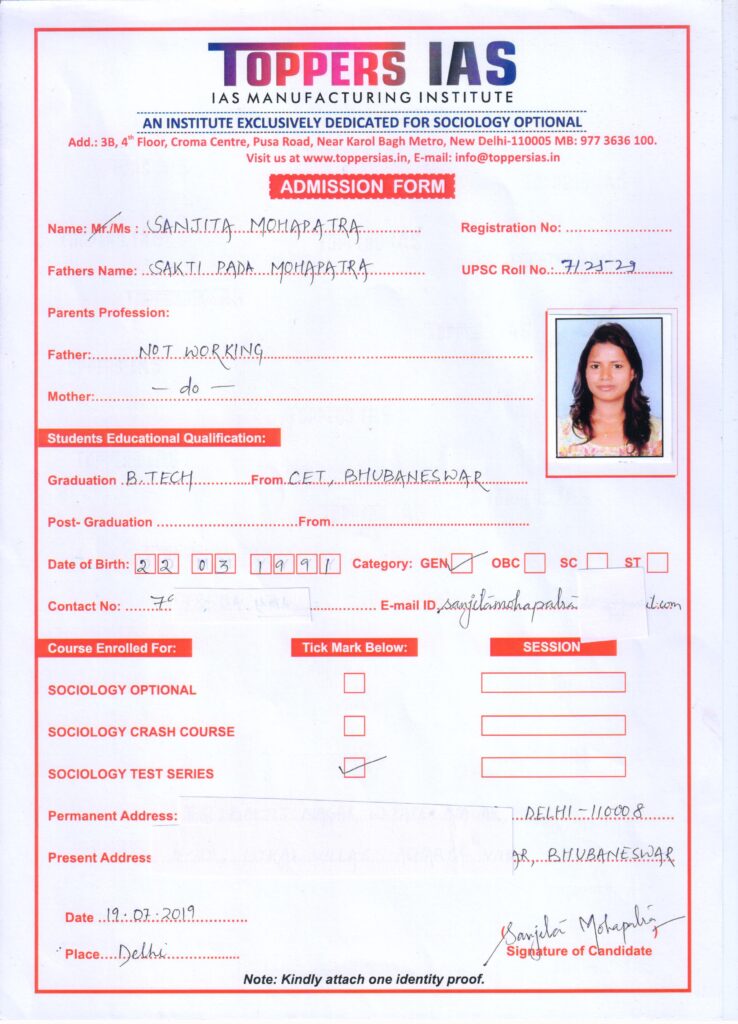 TOPPERS IAS
IAS MANUFACTURING INSTITUTE
AN INSTITUTE EXCLUSIVELY DEDICATED FOR SOCIOLOGY OPTIONAL
Add.: 3B, 4th Floor, Croma Centre, Pusa Road, Near Karol Bagh Metro, New Delhi-110005 MB: 977 3636 100.
Visit us at www.toppersias.in, E-mail: info@toppersias.in
ADMISSION FORM
Name: Mr./Ms : SANJITA MOHAPATRA Registration No:
Fathers Name: SAKTI PADA MOHAPATRA UPSC Roll No.:
Parents Profession:
Father: NOT WORKING
Mother: — do —
Students Educational Qualification:
Graduation B.TECH From CET, BHUBANESWAR
Post- Graduation From
Date of Birth: 22 03 1991 Category: GEN OBC SC ST
Contact No: E-mail ID sanjitamohapatra il.com
Course Enrolled For: Tick Mark Below: SESSION
SOCIOLOGY OPTIONAL
SOCIOLOGY CRASH COURSE
SOCIOLOGY TEST SERIES
Permanent Address: DELHI - 110008
Present Address AR, BHUBANESWAR
Date 19.07.2019
Sanjita Mohapatra
Place Delhi Signature of Candidate
Note: Kindly attach one identity proof.